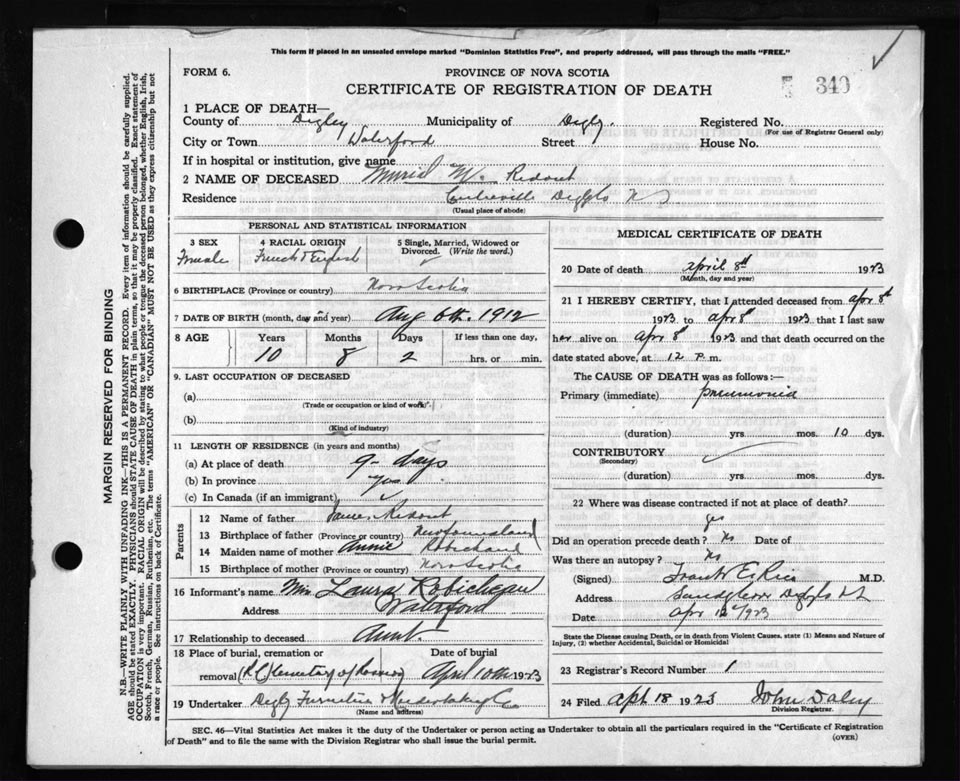 This form if placed in an unsealed envelope marked "Dominion Statistics Free", and properly addressed, will pass through the mails "FREE."
FORM 6.
PROVINCE OF NOVA SCOTIA
CERTIFICATE OF REGISTRATION OF DEATH
340
1 PLACE OF DEATH—
County of Digby Municipality of Digby Registered No.
(For use of Registrar General only)
City or Town Waterford Street House No.
If in hospital or institution, give name
2 NAME OF DECEASED Muriel M. Ridout
Residence Centreville Digby Co N S
(Usual place of abode)
PERSONAL AND STATISTICAL INFORMATION
3 SEX 4 RACIAL ORIGIN 5 Single, Married, Widowed or Divorced. (Write the word.)
Female French & English
6 BIRTHPLACE (Province or country) Nova Scotia
7 DATE OF BIRTH (month, day and year) Aug 6th. 1912
8 AGE Years Months Days If less than one day,
10 8 2 hrs. or min.
9. LAST OCCUPATION OF DECEASED
(a)
(Trade or occupation or kind of work).
(b)
(Kind of industry)
11 LENGTH OF RESIDENCE (in years and months)
(a) At place of death 9 - days
(b) In province yes
(c) In Canada (if an immigrant)
Parents
12 Name of father James Ridout
13 Birthplace of father (Province or country) Newfoundland
14 Maiden name of mother Annie Robichaud
15 Birthplace of mother (Province or country) Nova Scotia
16 Informant's name Mrs Laura Robichean
Address Waterford
17 Relationship to deceased Aunt.
18 Place of burial, cremation or removal Date of burial
(R.C) Cemetery April 10th 1923
19 Undertaker Digby Furniture & Undertaking Co
(Name and address)
MEDICAL CERTIFICATE OF DEATH
20 Date of death april 8th 1923
(Month, day and year)
21 I HEREBY CERTIFY, that I attended deceased from apr 8th
1923 to apr 8th 1923 that I last saw
her alive on apr 8th 1923 and that death occurred on the
date stated above, at 12 P. m.
The CAUSE OF DEATH was as follows:—
Primary (immediate) pneumonia
(duration) yrs. mos. 10 dys.
CONTRIBUTORY
(Secondary)
(duration) yrs. mos. dys.
22 Where was disease contracted if not at place of death?
yes
Did an operation precede death? No Date of
Was there an autopsy? No
(Signed) Frank E. Rice M.D.
Address Sandy Cove Digby Co N S
Date apr 12/1923
State the Disease causing Death, or in death from Violent Causes, state (1) Means and Nature of
Injury, (2) whether Accidental, Suicidal or Homicidal
23 Registrar's Record Number 1
24 Filed Apl. 18 1923 John Daley
Division Registrar.
SEC. 46—Vital Statistics Act makes it the duty of the Undertaker or person acting as Undertaker to obtain all the particulars required in the "Certificate of Registration
of Death" and to file the same with the Division Registrar who shall issue the burial permit.
(OVER)
MARGIN RESERVED FOR BINDING
N.B.—WRITE PLAINLY WITH UNFADING INK—THIS IS A PERMANENT RECORD. Every item of information should be carefully supplied.
AGE should be stated EXACTLY. PHYSICIANS should STATE CAUSE OF DEATH in plain terms, so that it may be properly classified. Exact statement of
OCCUPATION is very important. RACIAL ORIGIN will be described by stating to what people or tongue the deceased person belonged, whether English, Irish,
Scotch, French, German, Russian, Ruthenian, etc. The terms "AMERICAN" or "CANADIAN" MUST NOT BE USED as they express citizenship but not
a race or people. See instructions on back of Certificate.